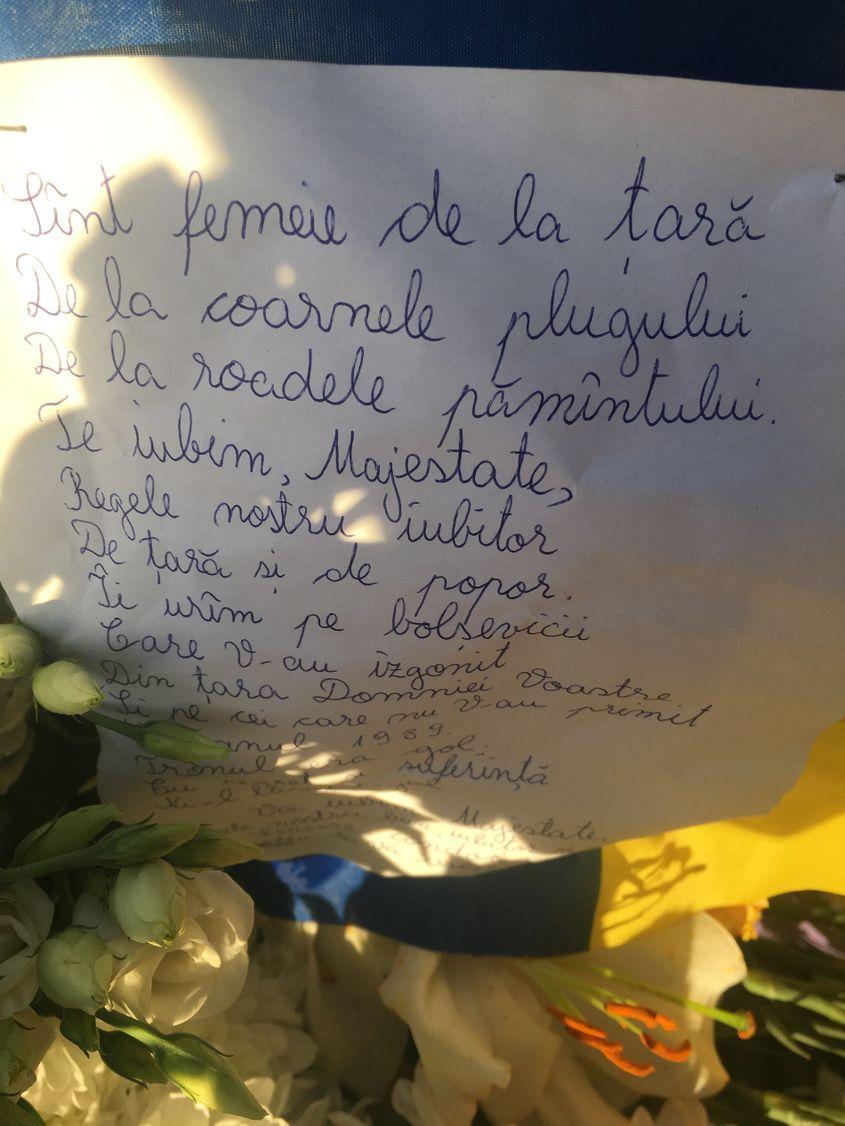 Sînt femeie de la țară
De la coarnele plugului
De la roadele pămîntului.
Te iubim, Majestate,
Regele nostru iubitor
De țară și de popor.
Îi urîm pe bolșevicii
Care v-au izgonit
Din țara Domniei Voastre
Și pe cei care nu v-au primit
anul 1989.
Tronul era gol.
suferință
Vă iubim Majestate,
nostru bun, iubitor